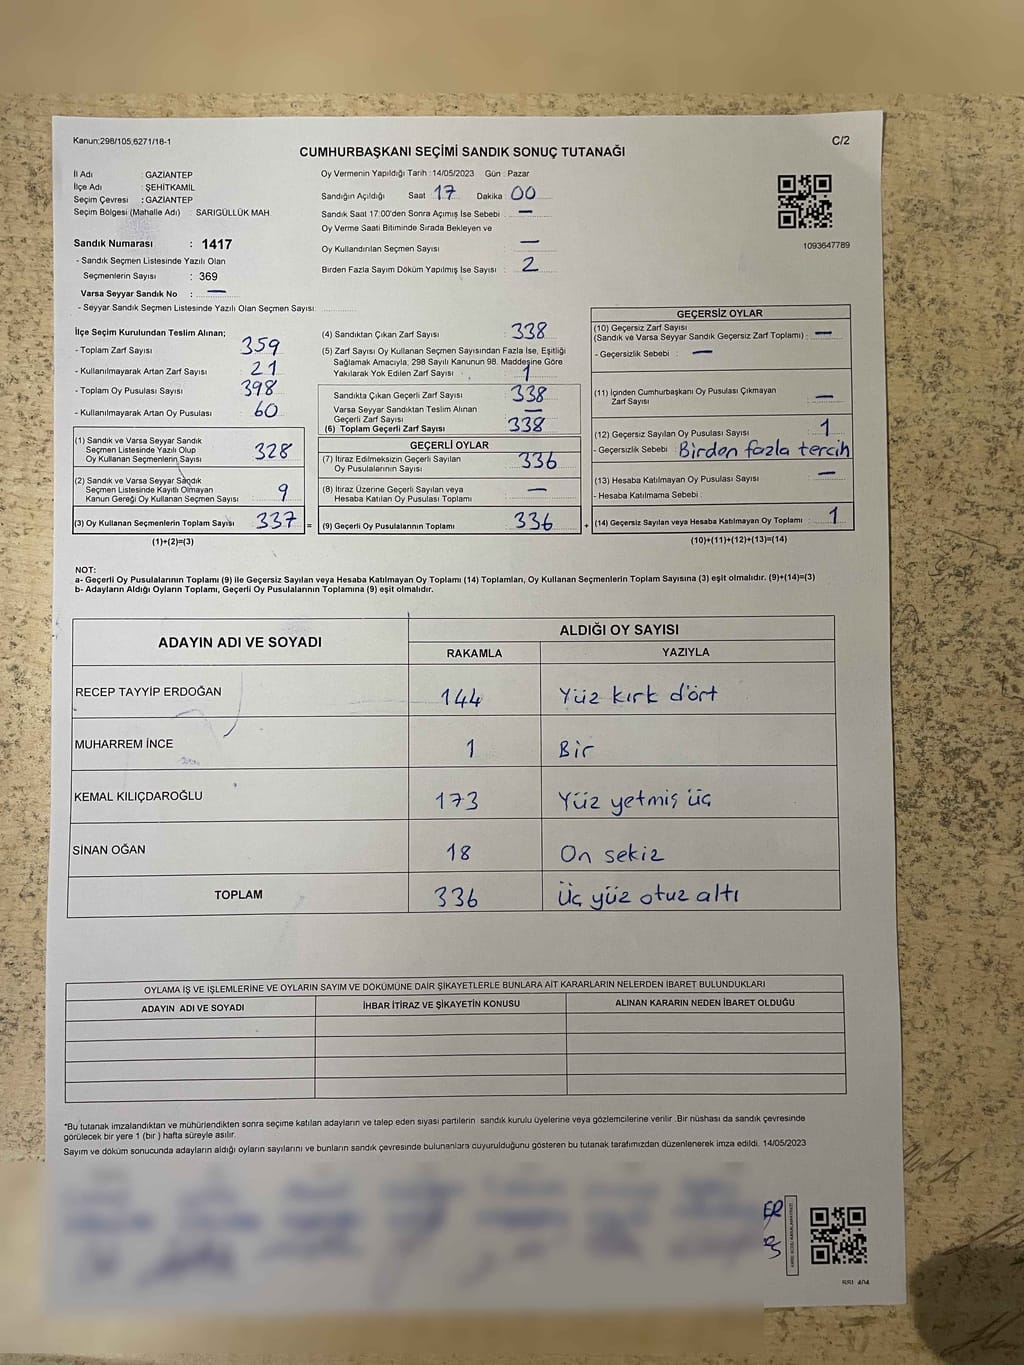 Kanun:298/105,6271/18-1
C/2
CUMHURBAŞKANI SEÇİMİ SANDIK SONUÇ TUTANAĞI
İl Adı : GAZİANTEP
İlçe Adı : ŞEHİTKAMİL
Seçim Çevresi : GAZİANTEP
Seçim Bölgesi (Mahalle Adı) : SARIGÜLLÜK MAH.
Sandık Numarası : 1417
- Sandık Seçmen Listesinde Yazılı Olan
Seçmenlerin Sayısı : 369
Varsa Seyyar Sandık No : —
- Seyyar Sandık Seçmen Listesinde Yazılı Olan Seçmen Sayısı:
Oy Vermenin Yapıldığı Tarih :14/05/2023 Gün : Pazar
Sandığın Açıldığı Saat 17 Dakika 00
Sandık Saat 17:00'den Sonra Açımış İse Sebebi : —
Oy Verme Saati Bitiminde Sırada Bekleyen ve
Oy Kullandırılan Seçmen Sayısı —
Birden Fazla Sayım Döküm Yapılmış İse Sayısı : 2
1093647789
İlçe Seçim Kurulundan Teslim Alınan;
- Toplam Zarf Sayısı 359
- Kullanılmayarak Artan Zarf Sayısı 21
- Toplam Oy Pusulası Sayısı 398
- Kullanılmayarak Artan Oy Pusulası 60
(1) Sandık ve Varsa Seyyar Sandık
Seçmen Listesinde Yazılı Olup
Oy Kullanan Seçmenlerin Sayısı 328
(2) Sandık ve Varsa Seyyar Sandık
Seçmen Listesinde Kayıtlı Olmayan
Kanun Gereği Oy Kullanan Seçmen Sayısı 9
(3) Oy Kullanan Seçmenlerin Toplam Sayısı 337 =
(1)+(2)=(3)
(4) Sandıktan Çıkan Zarf Sayısı 338
(5) Zarf Sayısı Oy Kullanan Seçmen Sayısından Fazla İse, Eşitliği
Sağlamak Amacıyla, 298 Sayılı Kanunun 98. Maddesine Göre
Yakılarak Yok Edilen Zarf Sayısı : 1
Sandıkta Çıkan Geçerli Zarf Sayısı 338
Varsa Seyyar Sandıktan Teslim Alınan
Geçerli Zarf Sayısı —
(6) Toplam Geçerli Zarf Sayısı 338
GEÇERLİ OYLAR
(7) İtiraz Edilmeksizin Geçerli Sayılan
Oy Pusulalarının Sayısı 336
(8) İtiraz Üzerine Geçerli Sayılan veya
Hesaba Katılan Oy Pusulası Toplamı —
(9) Geçerli Oy Pusulalarının Toplamı 336 +
GEÇERSİZ OYLAR
(10) Geçersiz Zarf Sayısı
(Sandık ve Varsa Seyyar Sandık Geçersiz Zarf Toplamı) : —
- Geçersizlik Sebebi : —
(11) İçinden Cumhurbaşkanı Oy Pusulası Çıkmayan
Zarf Sayısı —
(12) Geçersiz Sayılan Oy Pusulası Sayısı 1
- Geçersizlik Sebebi : Birden fazla tercih
(13) Hesaba Katılmayan Oy Pusulası Sayısı —
- Hesaba Katılmama Sebebi :
(14) Geçersiz Sayılan veya Hesaba Katılmayan Oy Toplamı 1
(10)+(11)+(12)+(13)=(14)
NOT:
a- Geçerli Oy Pusulalarının Toplamı (9) ile Geçersiz Sayılan veya Hesaba Katılmayan Oy Toplamı (14) Toplamları, Oy Kullanan Seçmenlerin Toplam Sayısına (3) eşit olmalıdır. (9)+(14)=(3)
b- Adayların Aldığı Oyların Toplamı, Geçerli Oy Pusulalarının Toplamına (9) eşit olmalıdır.
ADAYIN ADI VE SOYADI ALDIĞI OY SAYISI
RAKAMLA YAZIYLA
RECEP TAYYİP ERDOĞAN 144 Yüz kırk dört
MUHARREM İNCE 1 Bir
KEMAL KILIÇDAROĞLU 173 Yüz yetmiş üç
SİNAN OĞAN 18 On sekiz
TOPLAM 336 Üç yüz otuz altı
OYLAMA İŞ VE İŞLEMLERİNE VE OYLARIN SAYIM VE DÖKÜMÜNE DAİR ŞİKAYETLERLE BUNLARA AİT KARARLARIN NELERDEN İBARET BULUNDUKLARI
ADAYIN ADI VE SOYADI İHBAR İTİRAZ VE ŞİKAYETİN KONUSU ALINAN KARARIN NEDEN İBARET OLDUĞU
*Bu tutanak imzalandıktan ve mühürlendikten sonra seçime katılan adayların ve talep eden siyasi partilerin sandık kurulu üyelerine veya gözlemcilerine verilir .Bir nüshası da sandık çevresinde
görülecek bir yere 1 (bir ) hafta süreyle asılır.
Sayım ve döküm sonucunda adayların aldığı oyların sayılarını ve bunların sandık çevresinde bulunanlara duyurulduğunu gösteren bu tutanak tarafımızdan düzenlenerek imza edildi. 14/05/2023